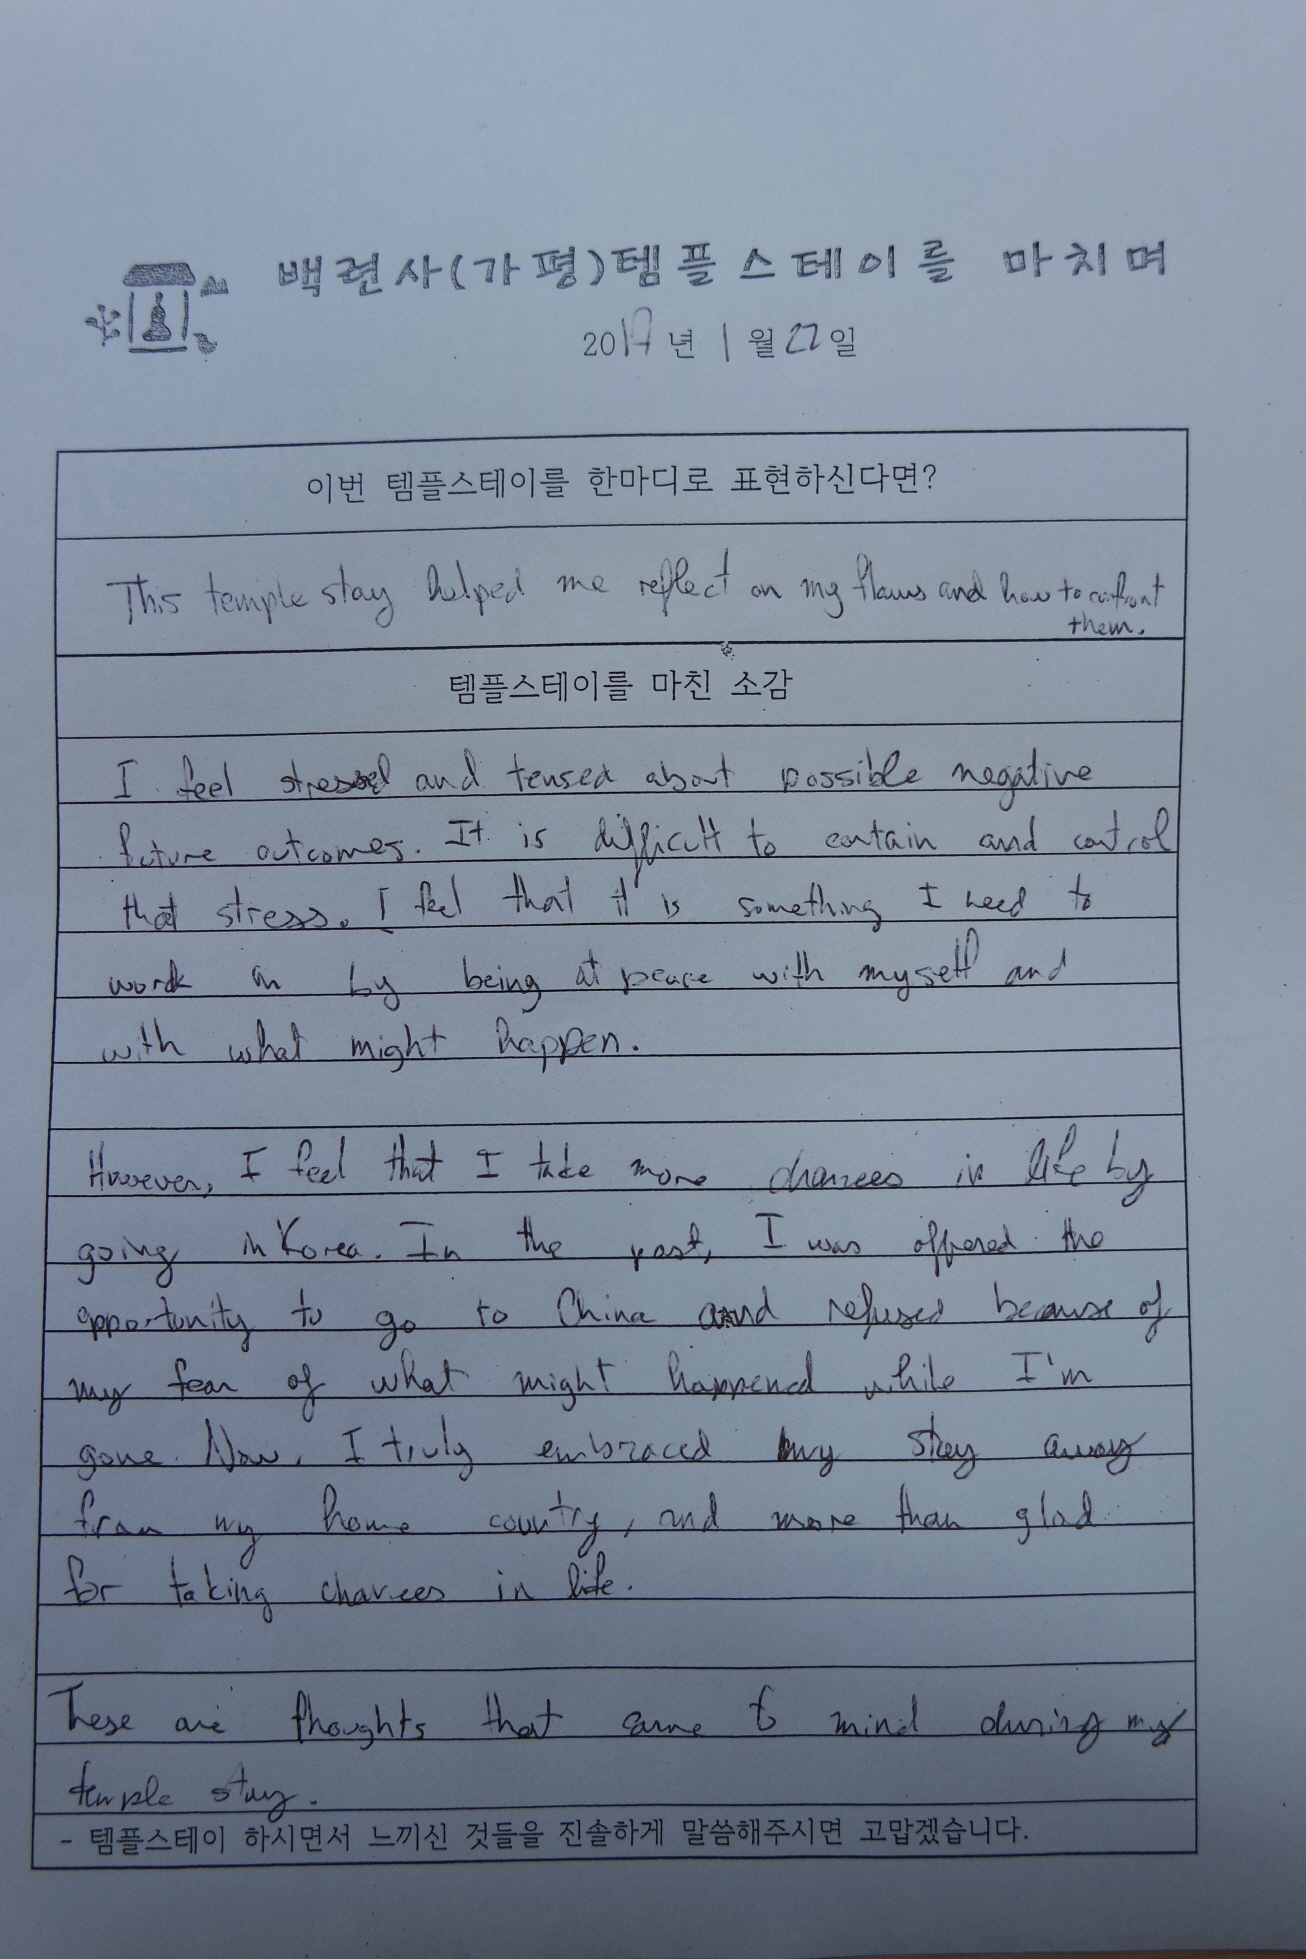 백련사(가평)템플스테이를 마치며
2017년 1월 22일
이번 템플스테이를 한마디로 표현하신다면?
This temple stay helped me reflect on my flaws and how to confront
them.
템플스테이를 마친 소감
I feel stressed and tensed about possible negative
future outcomes. It is difficult to contain and control
that stress. I feel that it is something I need to
work on by being at peace with myself and
with what might happen.
However, I feel that I take more chances in life by
going in Korea. In the past, I was offered the
opportunity to go to China and refused because of
my fear of what might happened while I'm
gone. Now, I truly embraced my stay away
from my home country, and more than glad
for taking chances in life.
These are thoughts that came to mind during my
temple stay.
- 템플스테이 하시면서 느끼신 것들을 진솔하게 말씀해주시면 고맙겠습니다.